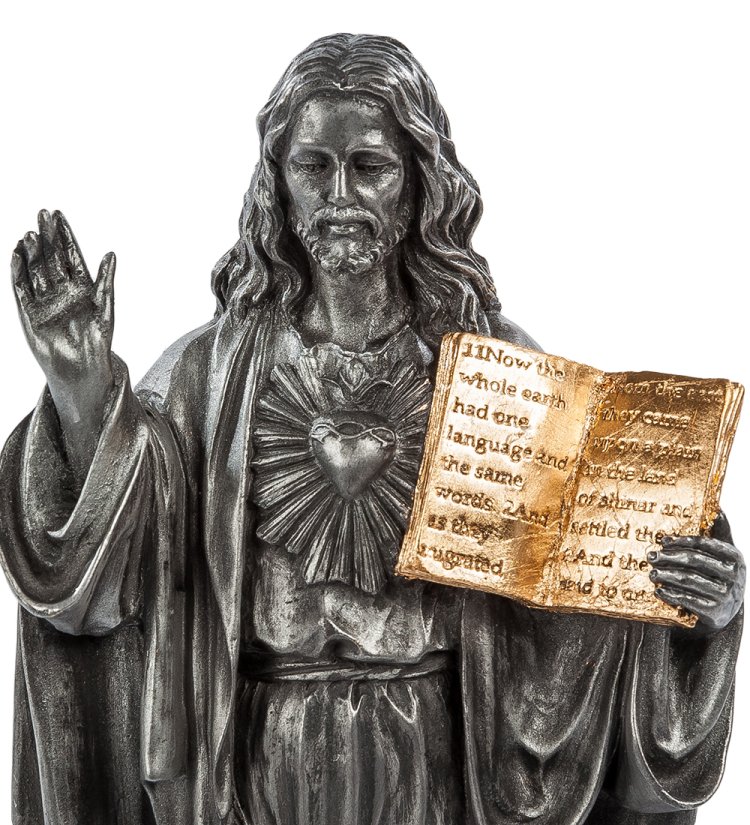 11Now the
whole earth
had one
language and
the same
words. 2And
as they
migrated
from the east
they came
upon a plain
in the land
of Shinar and
settled the
And the
said to